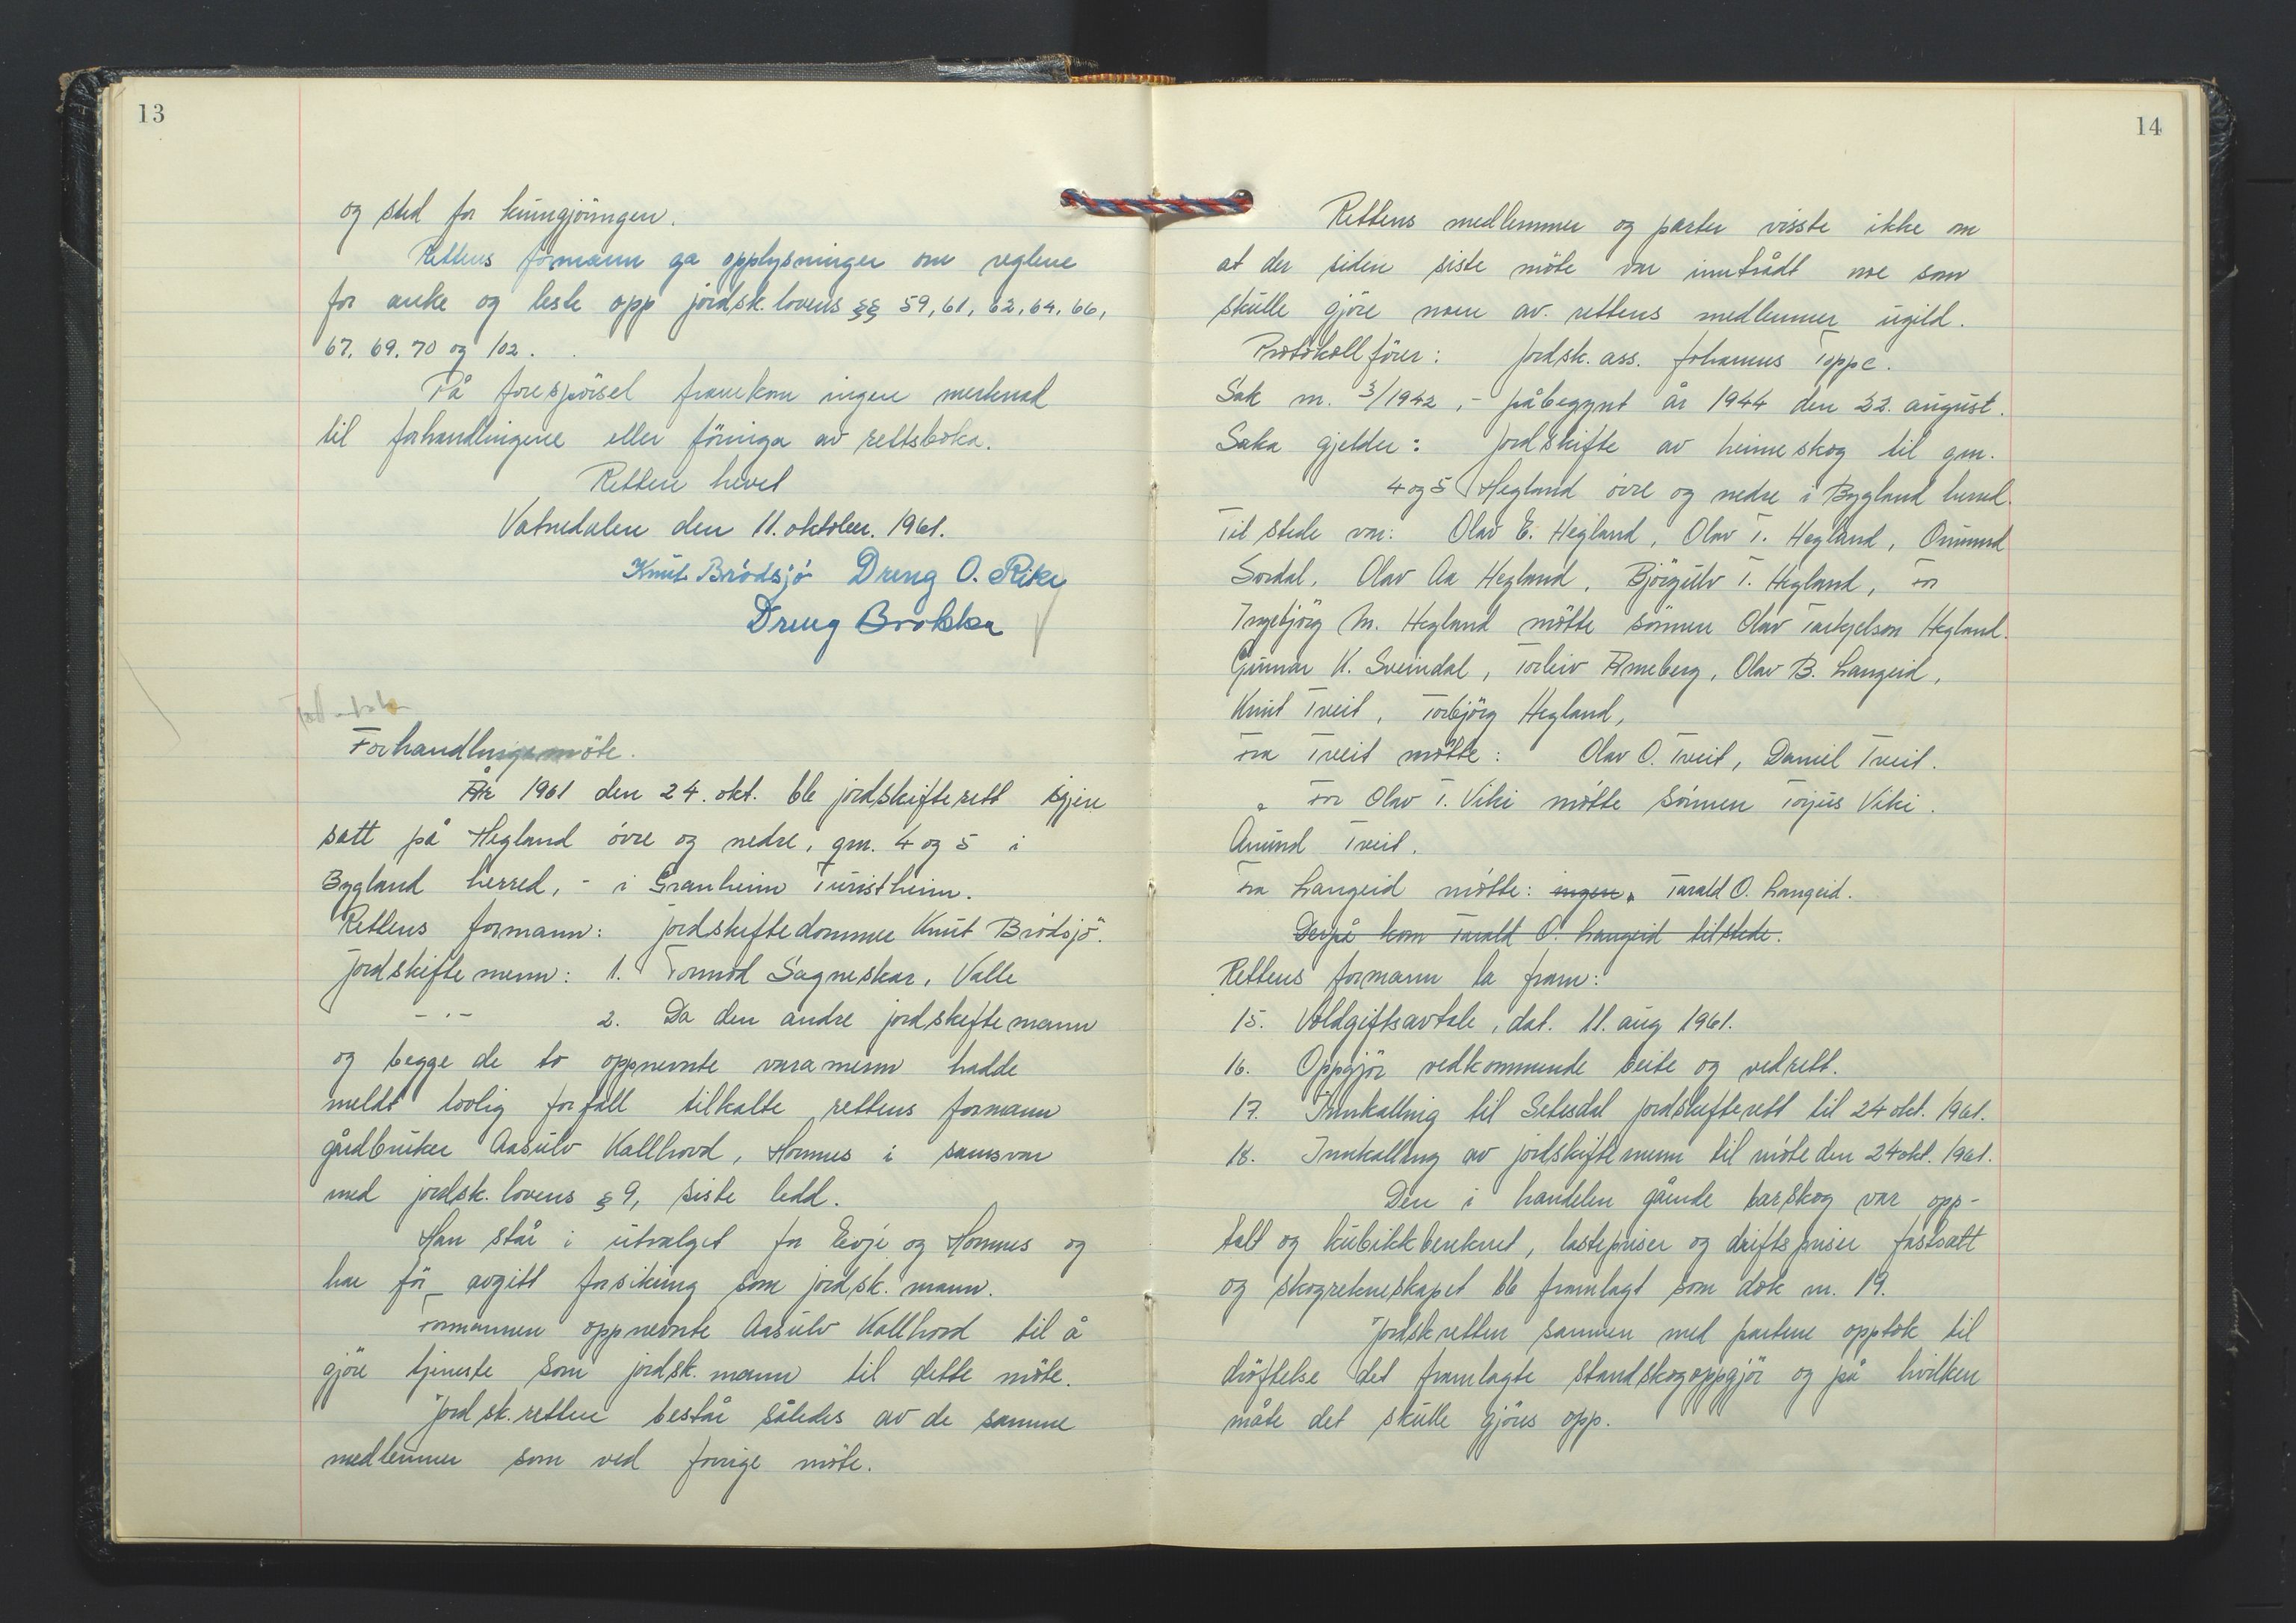 13
og sted for kunngjöringen.
Rettens formann ga opplysninger om reglene
for anke og leste opp jordsk. lovens §§ 59, 61, 62, 64, 66,
67, 69, 70 og 102.
På forespörsel framkom ingen merknad
til forhandlingene eller föringa av rettsboka.
Retten hevet
Vatnedalen den 11. oktober. 1961.
Knut Brödsjö Dreng O. Rike
Dreng Brokka
Forhandlingsmöte.
År 1961 den 24. okt. ble jordskifterett igjen
satt på Hegland övre og nedre, gnr. 4 og 5 i
Bygland herred, - i Granheim Turistheim.
Rettens formann: jordskiftedommer Knut Brödsjö.
Jordskiftemenn: 1. Tormod Sagneskar, Valle
- " - 2. Da den andre jordskiftemann
og begge de to oppnevnte varamenn hadde
meldt lovlig forfall tilkalte rettens formann
gårdbruker Aasulv Kallhovd, Hornnes i samsvar
med jordsk. lovens § 9, siste ledd.
Han står i utvalget for Evje og Hornnes og
har för avgitt forsikring som jordsk. mann.
Formannen oppnevnte Aasulv Kallhovd til å
gjöre tjeneste som jordsk. mann til dette möte.
Jordsk. retten består således av de samme
medlemmer som ved forrige möte.
14
Rettens medlemmer og parter visste ikke om
at der siden siste möte var inntrådt noe som
skulle gjöre noen av rettens medlemmer ugild.
Protokollförer: jordsk. ass. Johannes Toppe.
Sak nr. 3/1942, - påbegynt år 1944 den 22. august.
Saka gjelder: Jordskifte av heimeskog til gnr.
4 og 5 Hegland övre og nedre i Bygland herred.
Til stede var: Olav E. Hegland, Olav T. Hegland, Önund
Sordal, Olav Aa Hegland, Björgulv T. Hegland, For
Ingebjörg M. Hegland mötte sönnen Olav Tarkjelson Hegland.
Gunnar K. Sveindal, Torleiv Årneberg, Olav B. Langeid,
Knut Tveit, Torbjörg Hegland,
Fra Tveit mötte: Olav O. Tveit, Daniel Tveit.
" For Olav T. Viki mötte sönnen Torjus Viki.
Anund Tveit.
Fra Langeid mötte: ingen. Tarald O. Langeid.
Derpå kom Tarald O. Langeid tilstede.
Rettens formann la fram:
15. Voldgiftsavtale, dat. 11. aug 1961.
16. Oppgjör vedkommende beite og vedrett.
17. Innkalling til Setesdal jordskifterett til 24 okt. 1961.
18. Innkalling av jordskiftemenn til möte den 24 okt. 1961.
Den i handelen gående barskog var opp-
talt og kubikkberekned, lastepriser og driftspriser fastsatt
og skogrekneskapet ble framlagt som dok nr. 19.
Jordskretten sammen med partene opptok til
dröftelse det framlagte standskogoppgjör og på hvilken
måte det skulle gjöres opp.